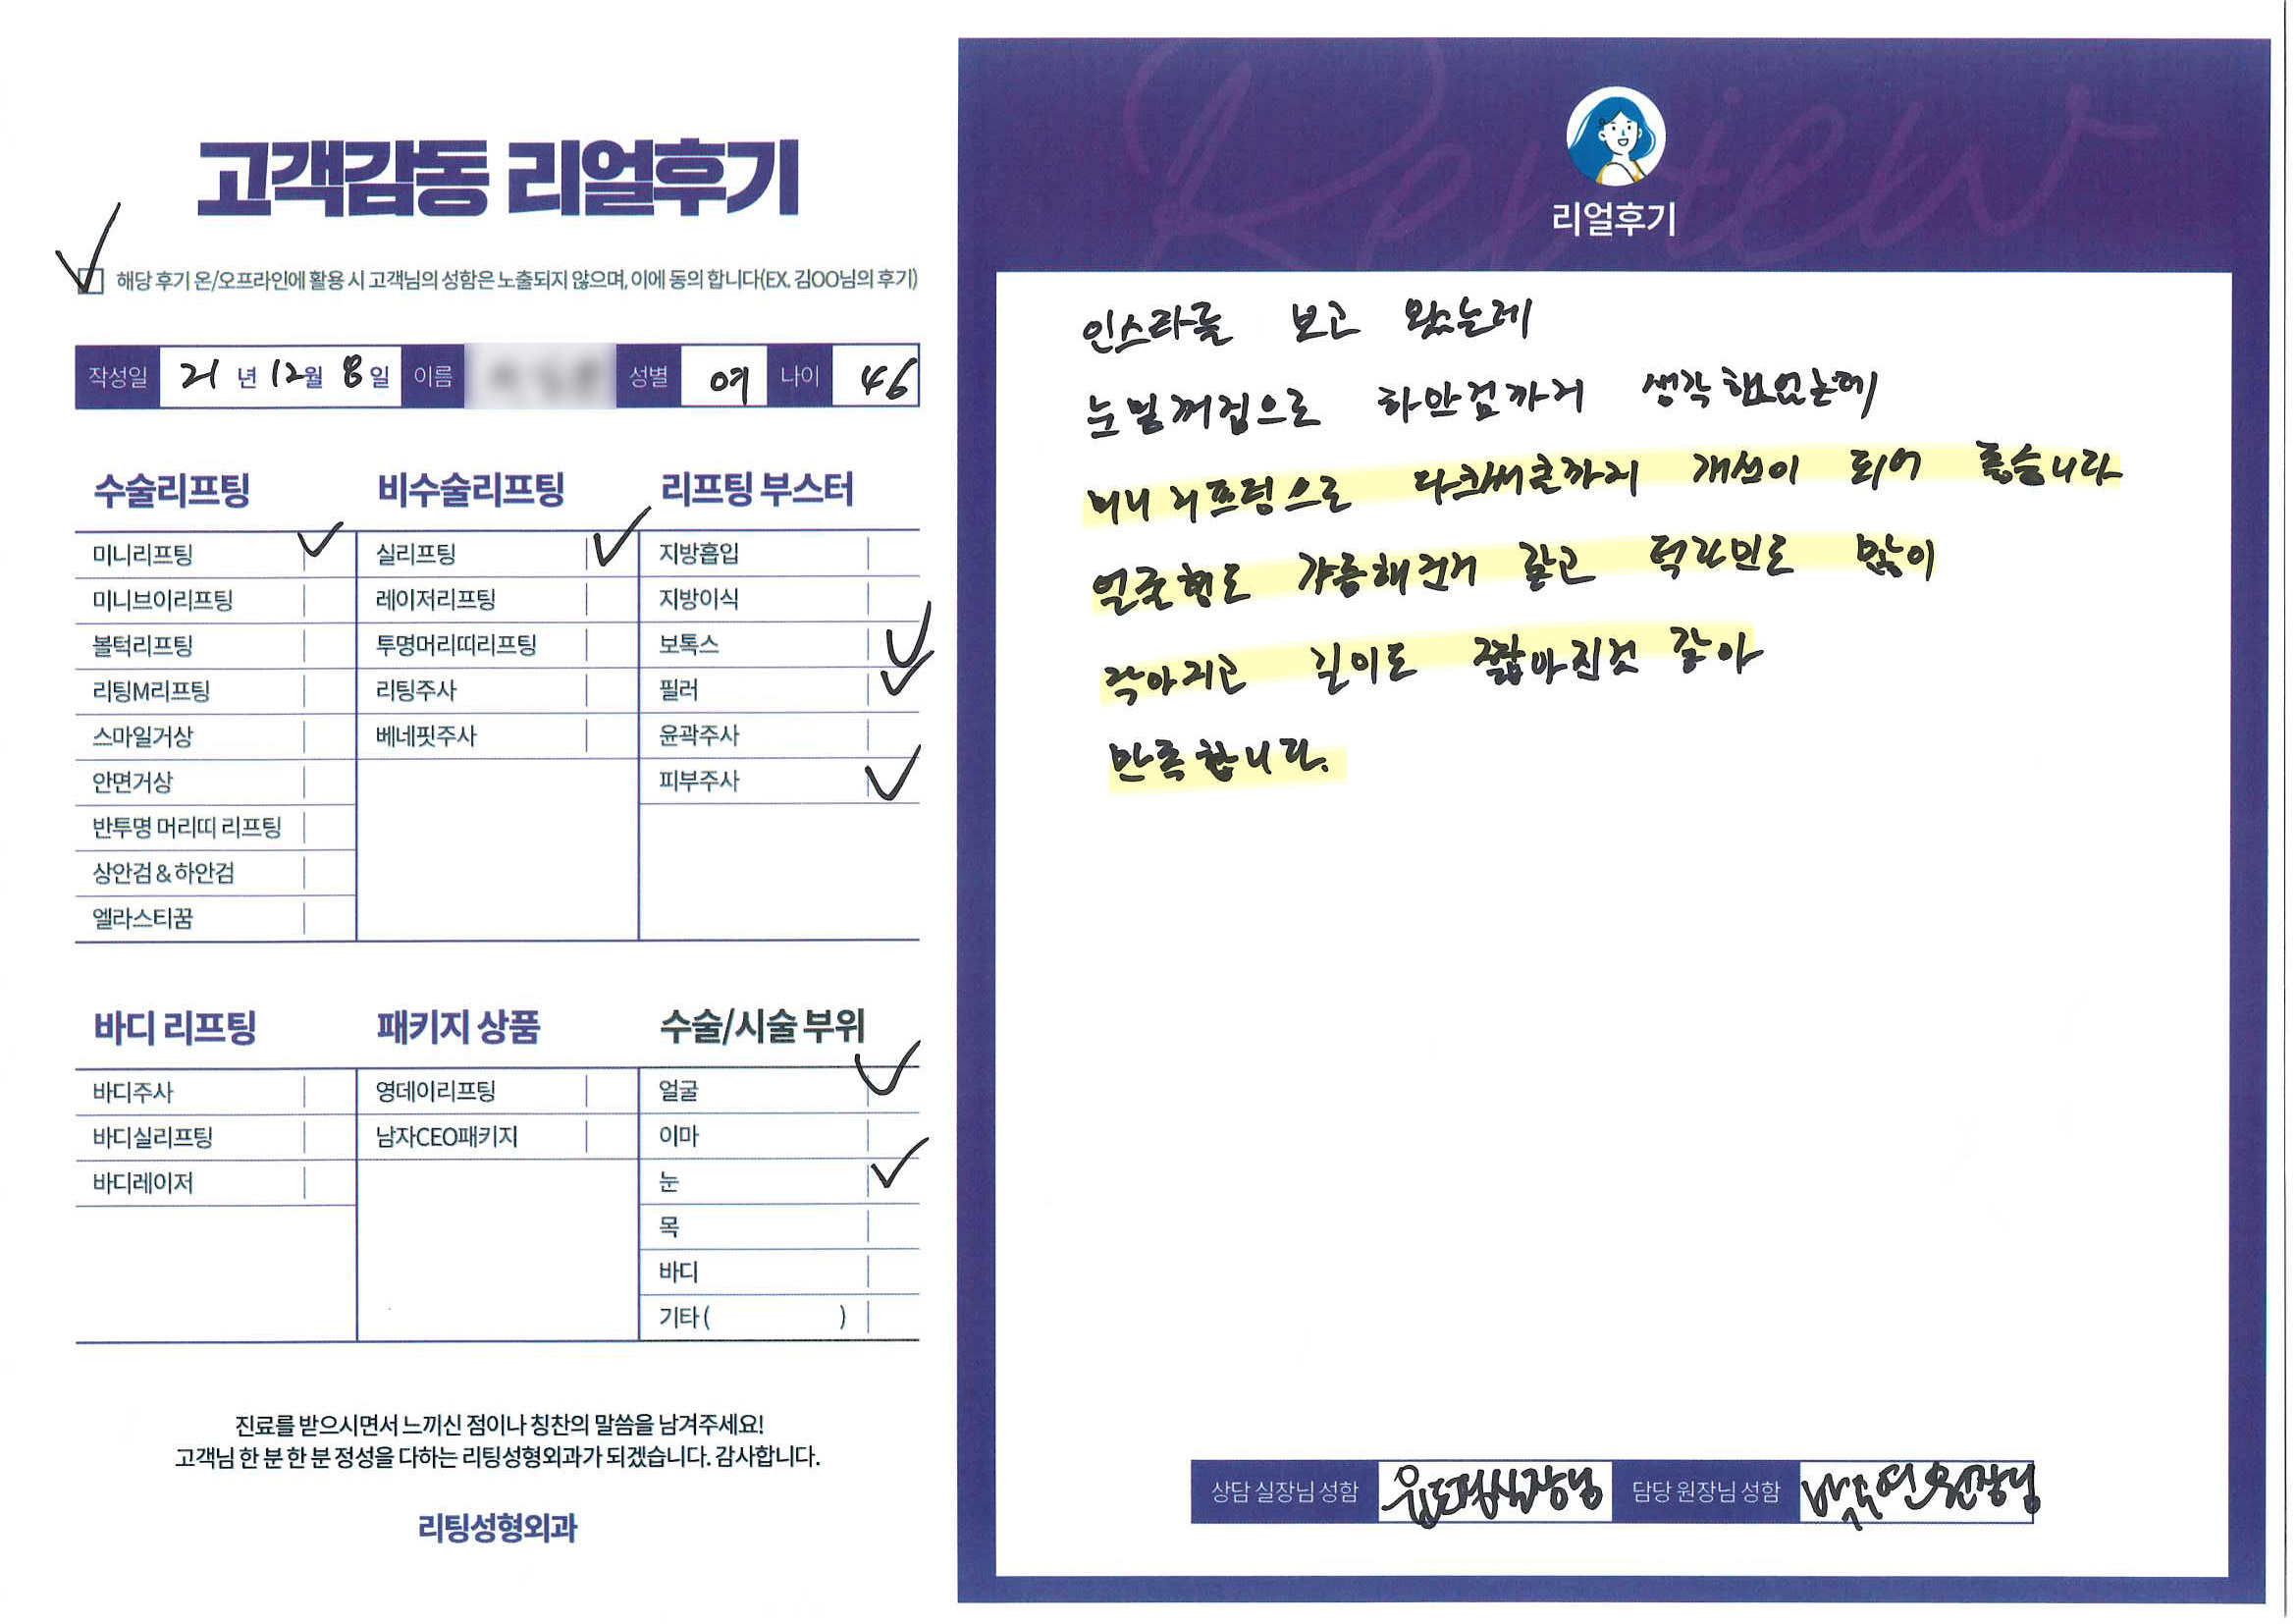 고객감동 리얼후기
해당 후기 온/오프라인에 활용 시 고객님의 성함은 노출되지 않으며, 이에 동의 합니다(EX. 김OO님의 후기)
작성일 21 년 12월 8일 이름 성별 여 나이 46
수술리프팅
미니리프팅
미니브이리프팅
볼턱리프팅
리팅M리프팅
스마일거상
안면거상
반투명 머리띠 리프팅
상안검 & 하안검
엘라스티꿈
비수술리프팅
실리프팅
레이저리프팅
투명머리띠리프팅
리팅주사
베네핏주사
리프팅 부스터
지방흡입
지방이식
보톡스
필러
윤곽주사
피부주사
바디 리프팅
바디주사
바디실리프팅
바디레이저
패키지 상품
영데이리프팅
남자CEO패키지
수술/시술 부위
얼굴
이마
눈
목
바디
기타 ( )
진료를 받으시면서 느끼신 점이나 칭찬의 말씀을 남겨주세요!
고객님 한 분 한 분 정성을 다하는 리팅성형외과가 되겠습니다. 감사합니다.
리팅성형외과
Review
리얼후기
인스타를 보고 왔는데
눈밑꺼짐으로 하안검까지 생각했었는데
미니리프팅으로 다크써클까지 개선이 되어 좋습니다
얼굴형도 갸름해진거 같고 턱라인도 많이
작아지고 길이도 짧아진것 같아
만족합니다.
상담 실장님 성함 실장님 담당 원장님 성함 원장님